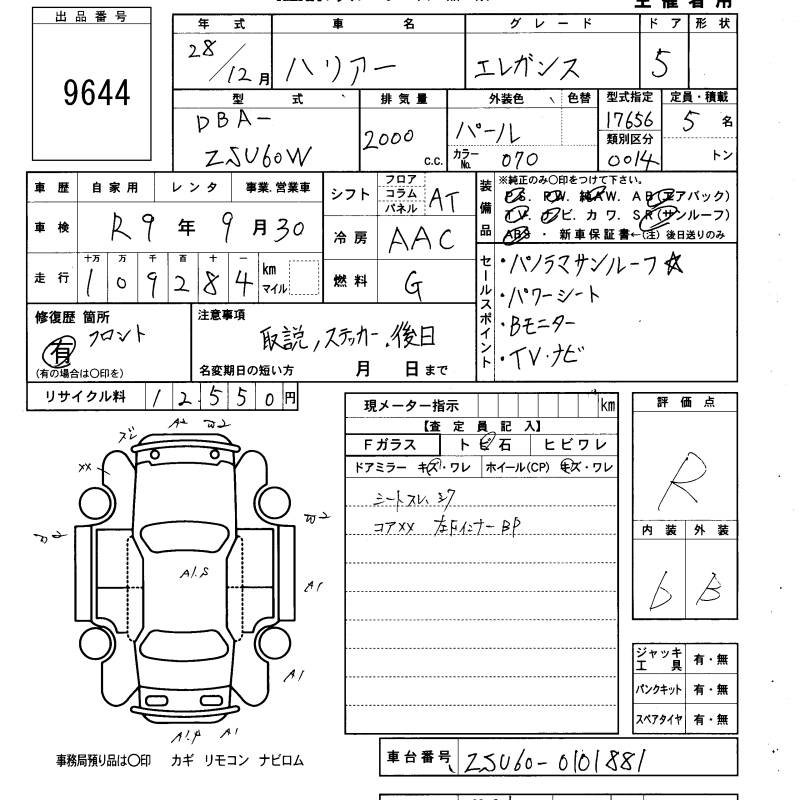 出品番号
9644
年式 車名 グレード ドア 形状
28/12月 ハリアー エレガンス 5
型式 排気量 外装色 色替 型式指定 定員・積載
DBA- 2000 パール 17656 5 名
類別区分
ZSU60W c.c. カラーNo. 070 0014 トン
車歴 自家用 レンタ 事業.営業車
シフト フロア コラム パネル AT
装備品
※純正のみ〇印をつけて下さい。
P.S. P.W. 純A.W. A B(エアバッグ)
T.V. ナビ カワ. S R(サンルーフ)
ABS ・ 新車保証書←(注) 後日送りのみ
車検 R9 年 9 月 30
冷房 AAC
走行 十万 万 千 百 十 一
1 0 9 2 8 4 km マイル
燃料 G
セールスポイント
・パノラマサンルーフ☆
・パワーシート
・Bモニター
・TV・ナビ
修復歴 箇所
有 フロント
(有の場合は〇印を)
注意事項
取説,ステッカー.後日
名変期日の短い方 月 日まで
リサイクル料 12550円
現メーター指示 km
【査定員記入】
Fガラス トビ石 ヒビワレ
ドアミラー キズ・ワレ ホイール(CP) キズ・ワレ
シートスレ、シワ
コアXX 左Fインナー BP
評価点
R
内装 外装
b B
A2 W2
ズレ
XX
W2
A1.S
A1
A1
A1.P A1
ジャッキ工具 有・無
パンクキット 有・無
スペアタイヤ 有・無
事務局預り品は〇印 カギ リモコン ナビロム
車台番号 ZSU60-0101881